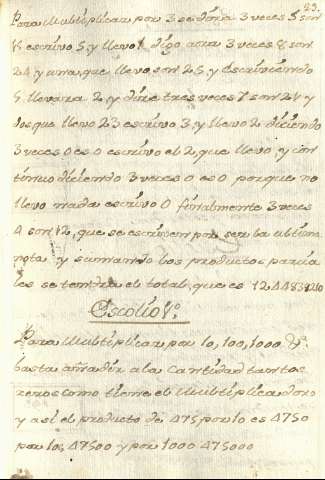 23.
Para Multiplicar por 3 se dira 3 veces 5 son
15 escrivo 5, y llevo 1 digo aora 3 veces 8 son
24 y una, que llevo, son 25, y escriviendo
5 llevara 2, y dire tres veces 7 son 21 y
dos, que llevo 23 escrivo 3, y llevo 2 diciendo
3 veces 0 es 0 escrivo el 2, que llevo, y con
tinuo diciendo 3 veces 0 es 0 porque no
llevo nada escrivo 0 finalmente 3 veces
4 son 12, que se escriven por ser la ultima
nota y sumando los productos parcia
les se tendra el total, que es
Escolio 1.º
Para Multiplicar por 10, 100, 1000 &.ª
basta añadir a la Cantidad tantos
zeros como tiene el Multiplicador
y asi el producto de 475 por 10 es 4750
por 100 47500 y por 1000 475000